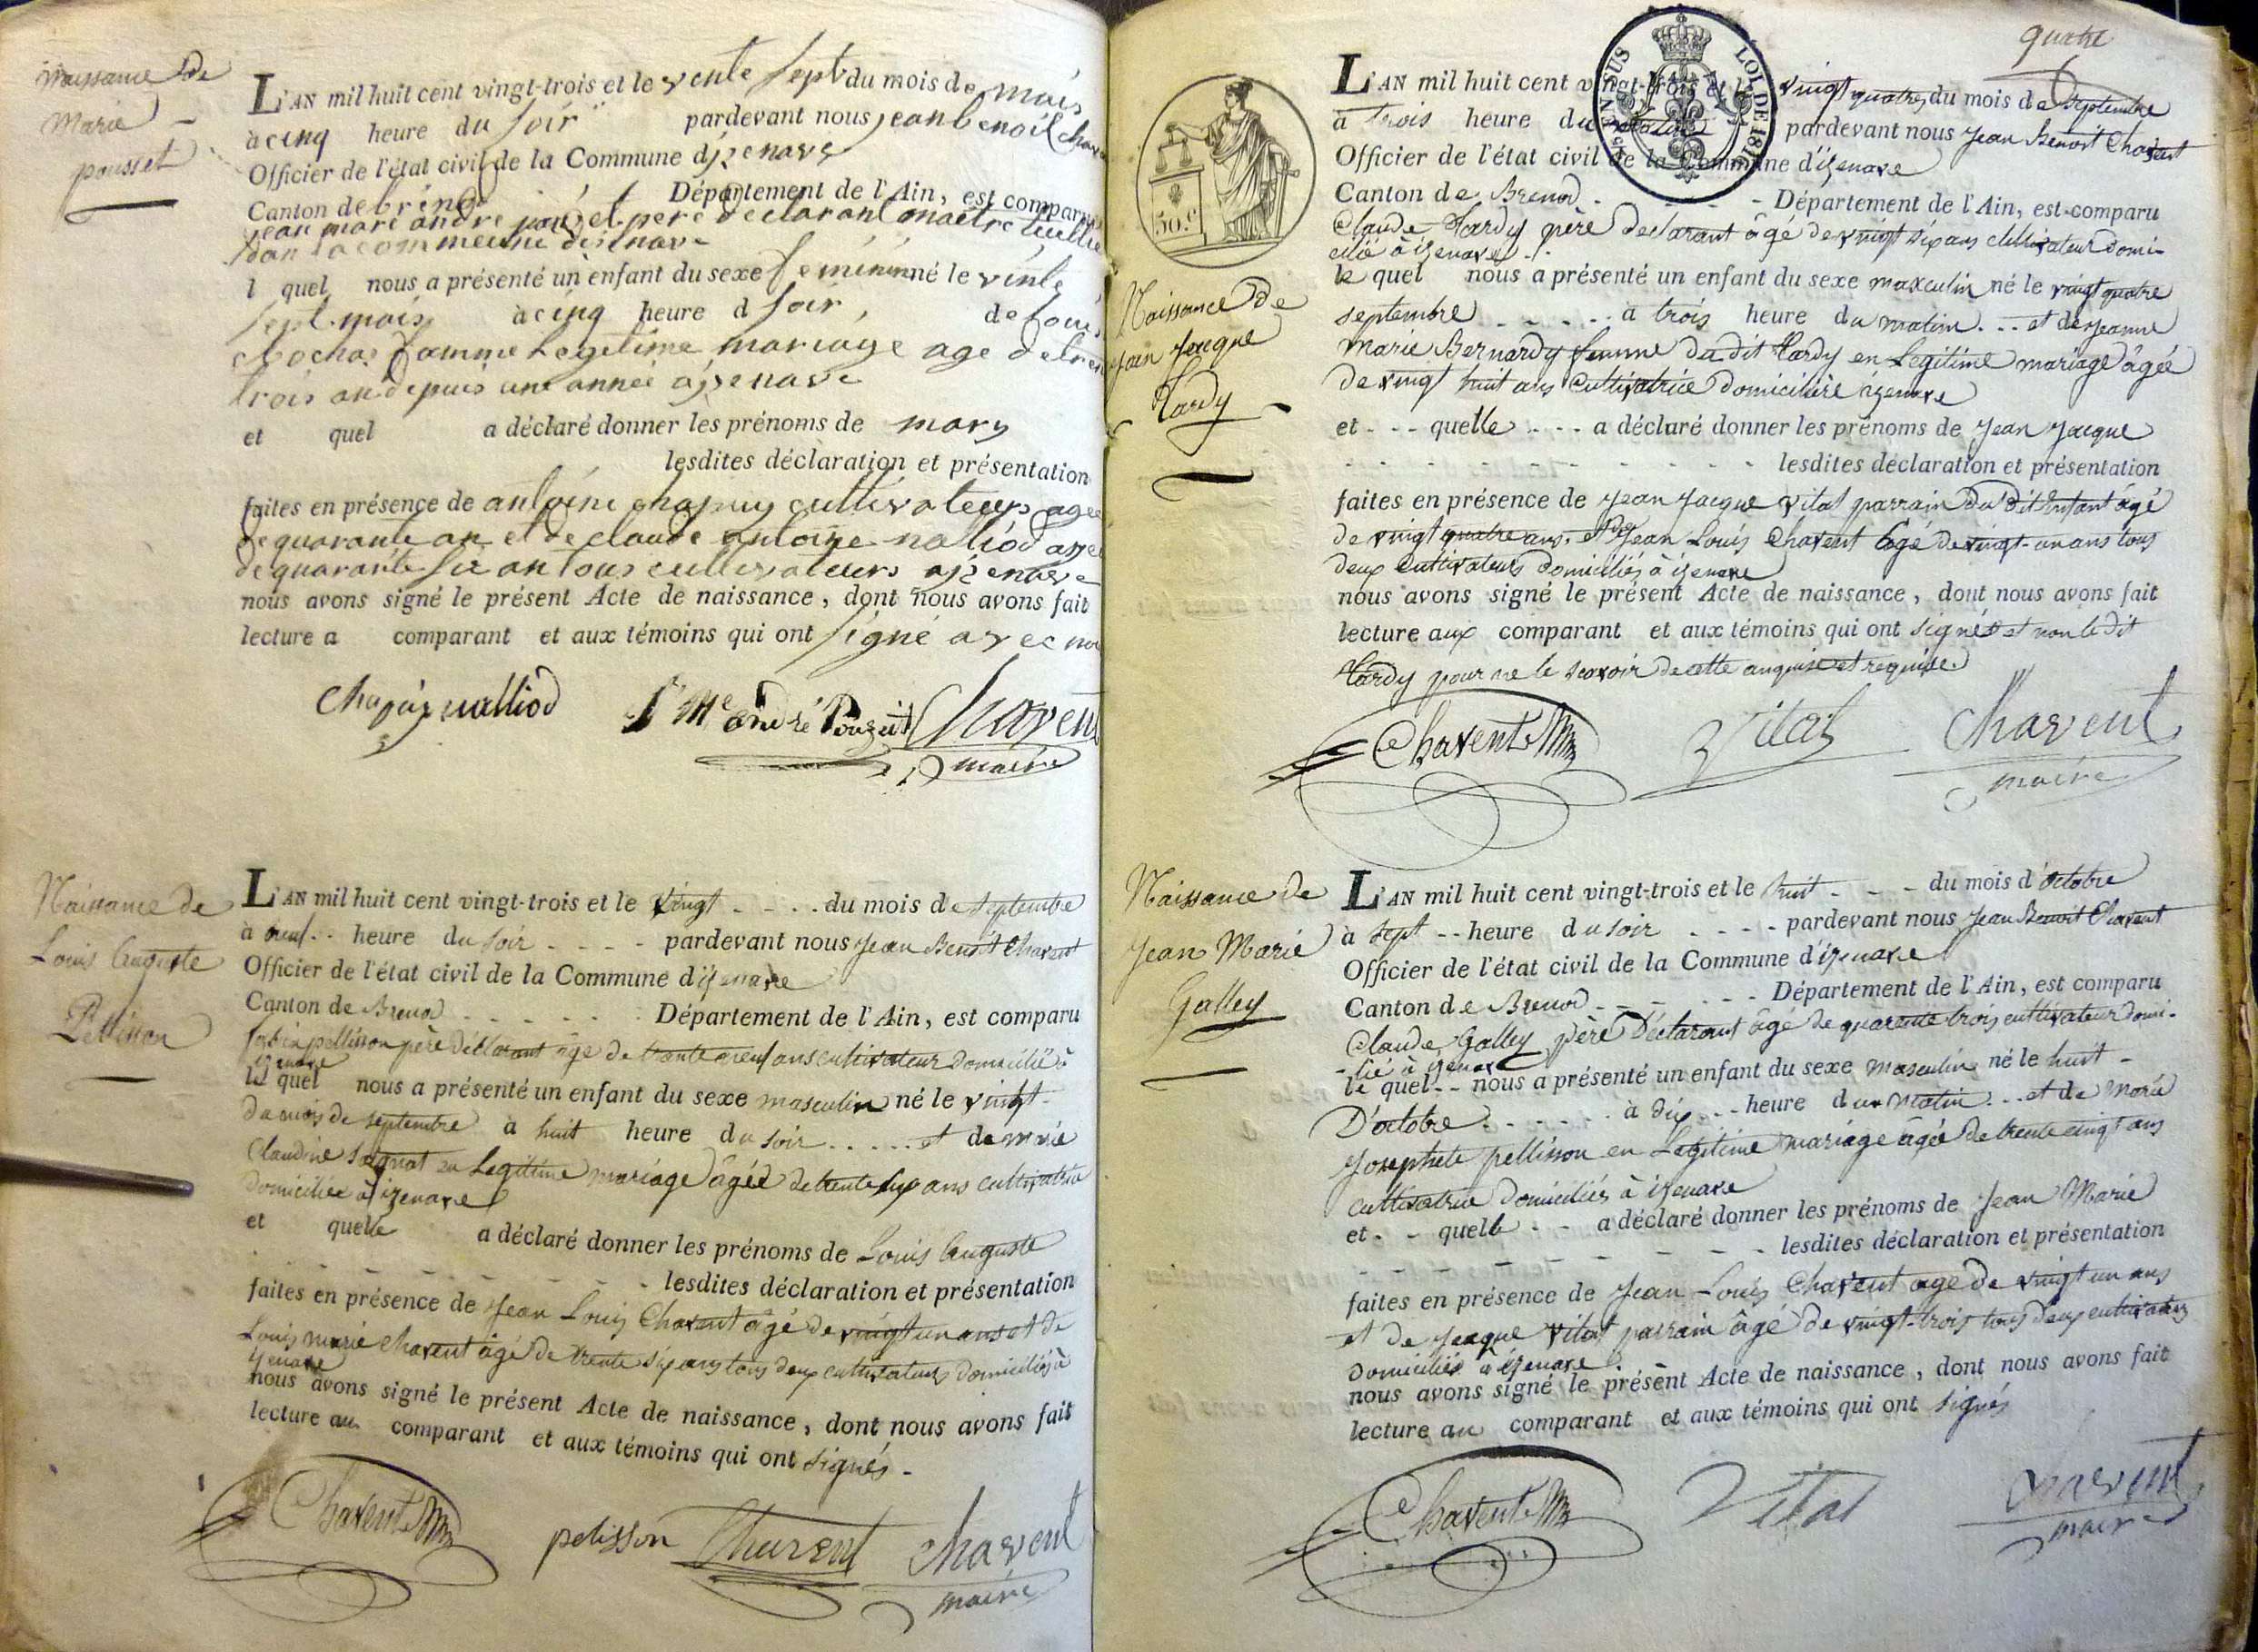 Naissance de
Marie
pousset
L'AN mil huit cent vingt-trois et le vente sept du mois de mais
à cinq heure du soir pardevant nous jean benoit
Officier de l'état civil de la Commune d'izenave
Canton de Département de l'Ain, est comparu
jean mari andre et pere declarant
dan la commeune
l quel nous a présenté un enfant du sexe feminin né le vinte
sept mais à cinq heure d soir, de
famme Legetime mariage age de
trois an depuis une année a izenave
et quel a déclaré donner les prénoms de mary
lesdites déclaration et présentation
faites en présence de antoine chapuy cultivateur agee
de quarante an et de claude antoine nalliod agee
de quarante six an tous cultivateurs a izenave
nous avons signé le présent Acte de naissance, dont nous avons fait
lecture a comparant et aux témoins qui ont signé avec nou
Chapuy nalliod J M andré Pouzet Chavent
maire
Naissance de
Louis Auguste
Pellisson
L'AN mil huit cent vingt-trois et le vingt du mois de septembre
à neuf heure du soir pardevant nous Jean Benoit Chavent
Officier de l'état civil de la Commune d'izenave
Canton de Brenod Département de l'Ain, est comparu
pellisson père déclarant âgé de trante neuf ans cultivateur domicilié à
izenave
le quel nous a présenté un enfant du sexe masculin né le vingt
du mois de septembre à huit heure du soir et de marie
Claudine en Legitime mariage âgée de trente six ans cultivatrice
domiciliée à izenave
et quelle a déclaré donner les prénoms de Louis Auguste
lesdites déclaration et présentation
faites en présence de Jean Louis Chavent âgé de vingt un ans et de
Louis marie Chavent âgé de trente six ans tous deux cultivateurs domiciliés à
izenave
nous avons signé le présent Acte de naissance, dont nous avons fait
lecture au comparant et aux témoins qui ont signés
Chavent pelisson Chavent Chavent
maire
quatre
TIMBRE
LOI DE 1816
30.c
L'AN mil huit cent vingt-trois et le vingt quatre du mois de septembre
à trois heure du matin pardevant nous Jean Benoit Chavent
Officier de l'état civil de la Commune d'izenave
Canton de Brenod Département de l'Ain, est comparu
Claude Hardy père déclarant âgé de vingt six ans cultivateur domi-
cilié à izenave
le quel nous a présenté un enfant du sexe masculin né le vingt quatre
Naissance de
Jean Jacque
Hardy
septembre à trois heure du matin et de Jeanne
Marie Bernardy femme du dit Hardy en Legitime mariage âgée
de vingt huit ans Cultivatrice domiciliée izenave
et quelle a déclaré donner les prénoms de Jean Jacque
lesdites déclaration et présentation
faites en présence de Jean Jacque Vital parrain du dit Enfant âgé
de vingt quatre ans et de Jean Louis Chavent âgé de vingt-un ans tous
deux Cultivateurs domiciliés à izenave
nous avons signé le présent Acte de naissance, dont nous avons fait
lecture aux comparant et aux témoins qui ont signés et non le dit
Hardy pour ne le savoir de cette anquise et requise
Chavent Vital Chavent
maire
Naissance de
Jean Marie
Galley
L'AN mil huit cent vingt-trois et le huit du mois d'octobre
à sept heure du soir pardevant nous Jean Benoit Chavent
Officier de l'état civil de la Commune d'izenave
Canton de Brenod Département de l'Ain, est comparu
Claude Galley père Déclarant âgé de quarente trois cultivateur domi-
-lié à izenave
le quel nous a présenté un enfant du sexe masculin né le huit
D'octobre à dix heure du matin et de Marie
Josephete pellisson en Legitime mariage âgée de trente cinqt ans
cultivatrice domiciliés à izenave
et quelle a déclaré donner les prénoms de Jean Marie
lesdites déclaration et présentation
faites en présence de Jean Louis Chavent age de vingt un ans
et de Jacque Vital parrain âgé de vingt-trois tous deux cultivateurs
Domiciliés à izenave
nous avons signé le présent Acte de naissance, dont nous avons fait
lecture au comparant et aux témoins qui ont signés
Chavent Vital Chavent
maire